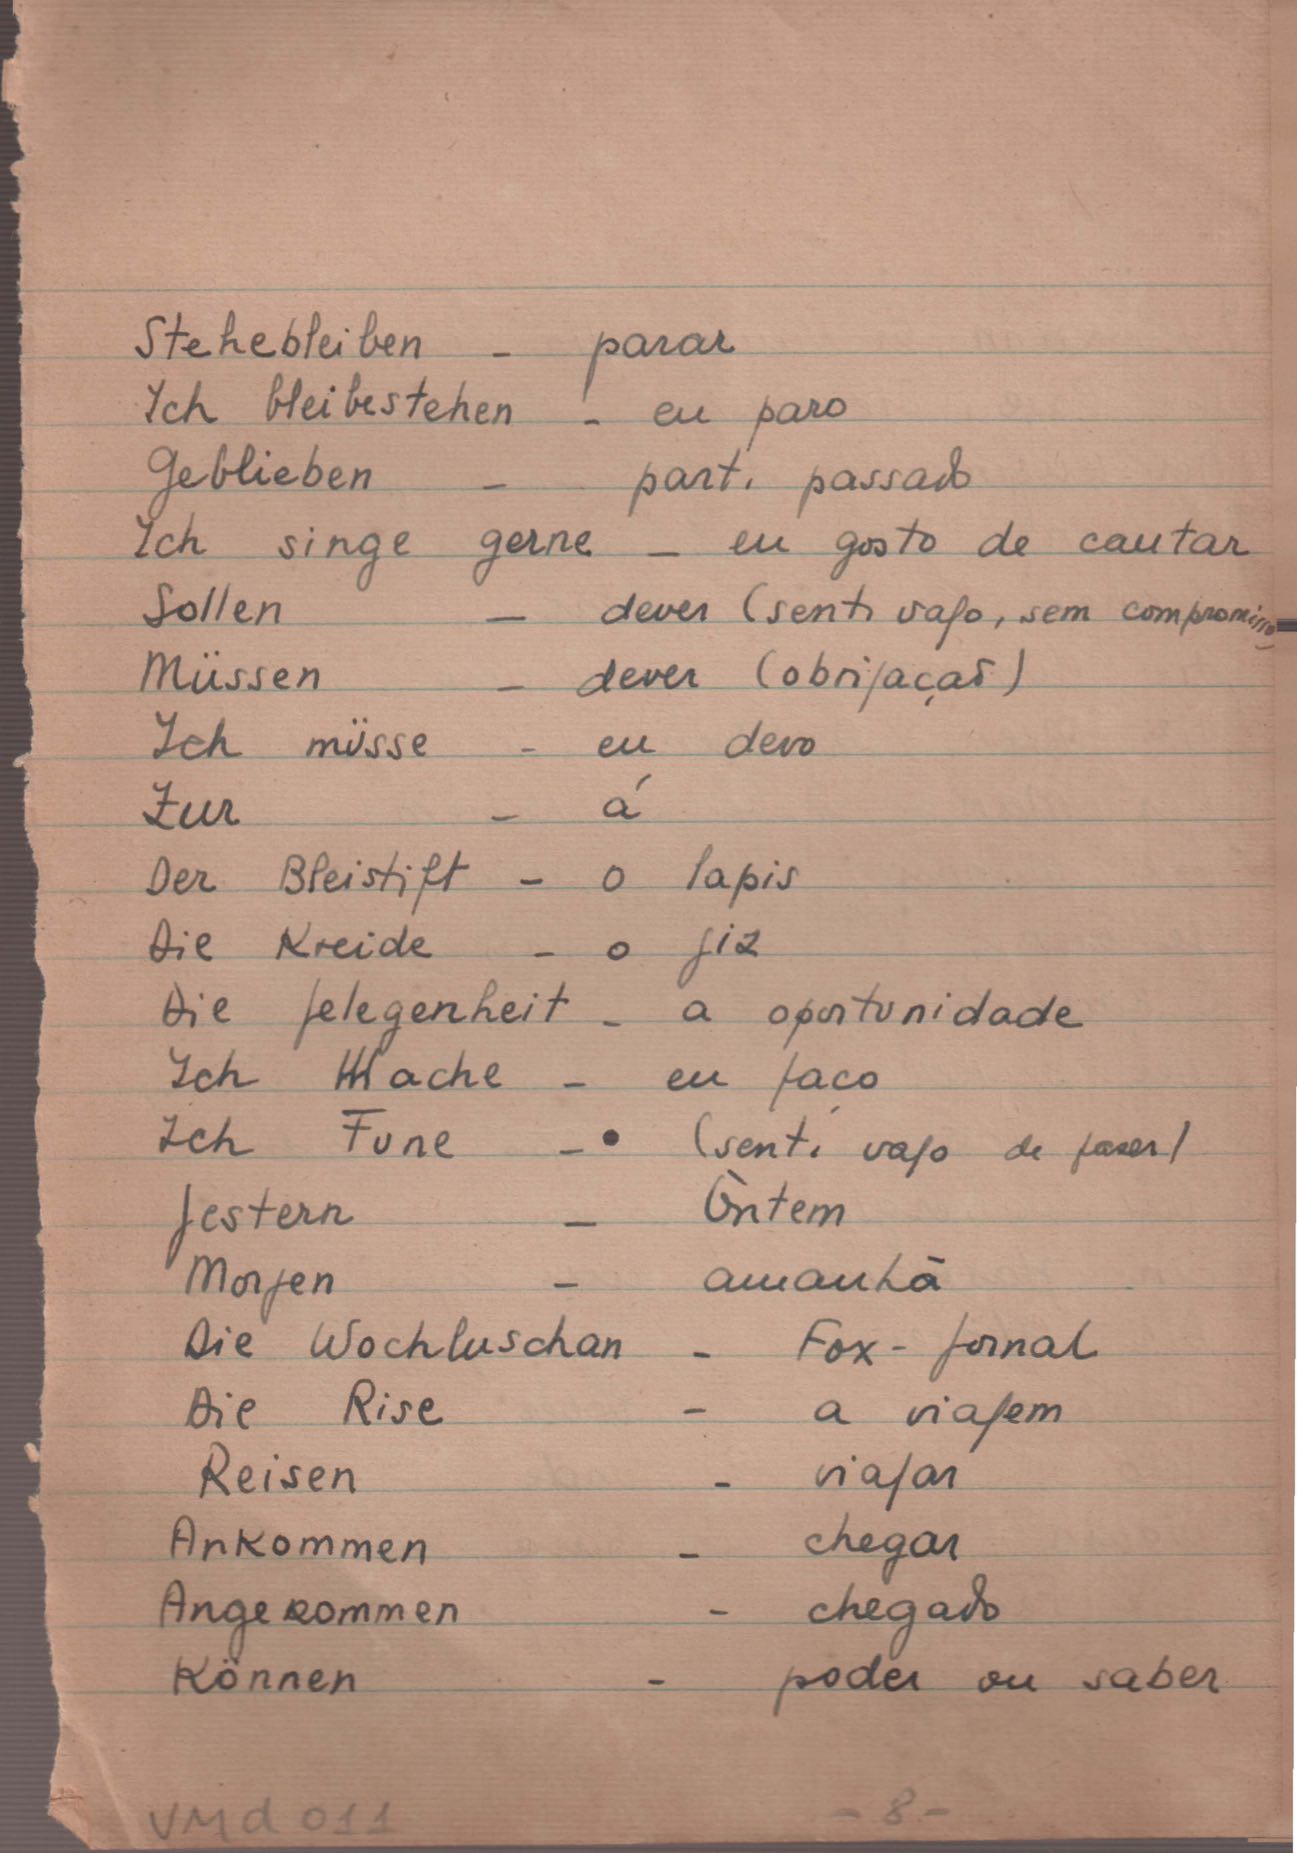 Stehebleiben - parar
Ich bleibestehen - eu paro
Geblieben - part. passado
Ich singe gerne - eu gosto de cantar
Sollen - dever (sent. vago, sem compromisso
Müssen - dever (obrigação)
Ich müsse - eu devo
Zur - á
Der Bleistift - o lapis
Die Kreide - o giz
Die Gelegenheit - a oportunidade
Ich Mache - eu faço
Ich Tune - • (sent. vago de fazer)
Gestern - Òntem
Morgen - amanhã
Die Wochluschan - Fox-Jornal
Die Rise - a viagem
Reisen - viajar
Ankommen - chegar
Angekommen - chegado
Können - poder ou saber
VMd 011 -8-